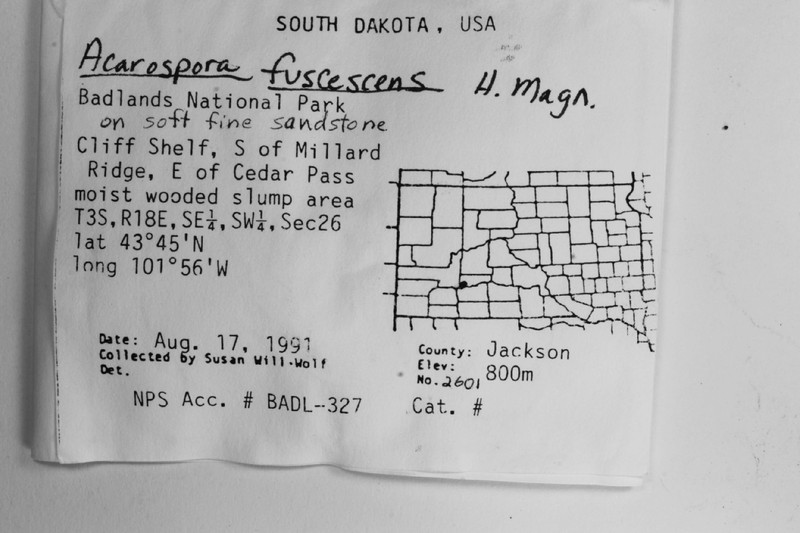 SOUTH DAKOTA, USA
Acarospora fuscescens H. Magn.
Badlands National Park
on soft fine sandstone
Cliff Shelf, S of Millard
Ridge, E of Cedar Pass
moist wooded slump area
T3S,R18E,SE¼,SW¼,Sec26
lat 43°45'N
long 101°56'W
Date: Aug. 17, 1991
Collected by Susan Will-Wolf
Det.
County: Jackson
Elev: 800m
No. 2601
NPS Acc. # BADL--327 Cat. #